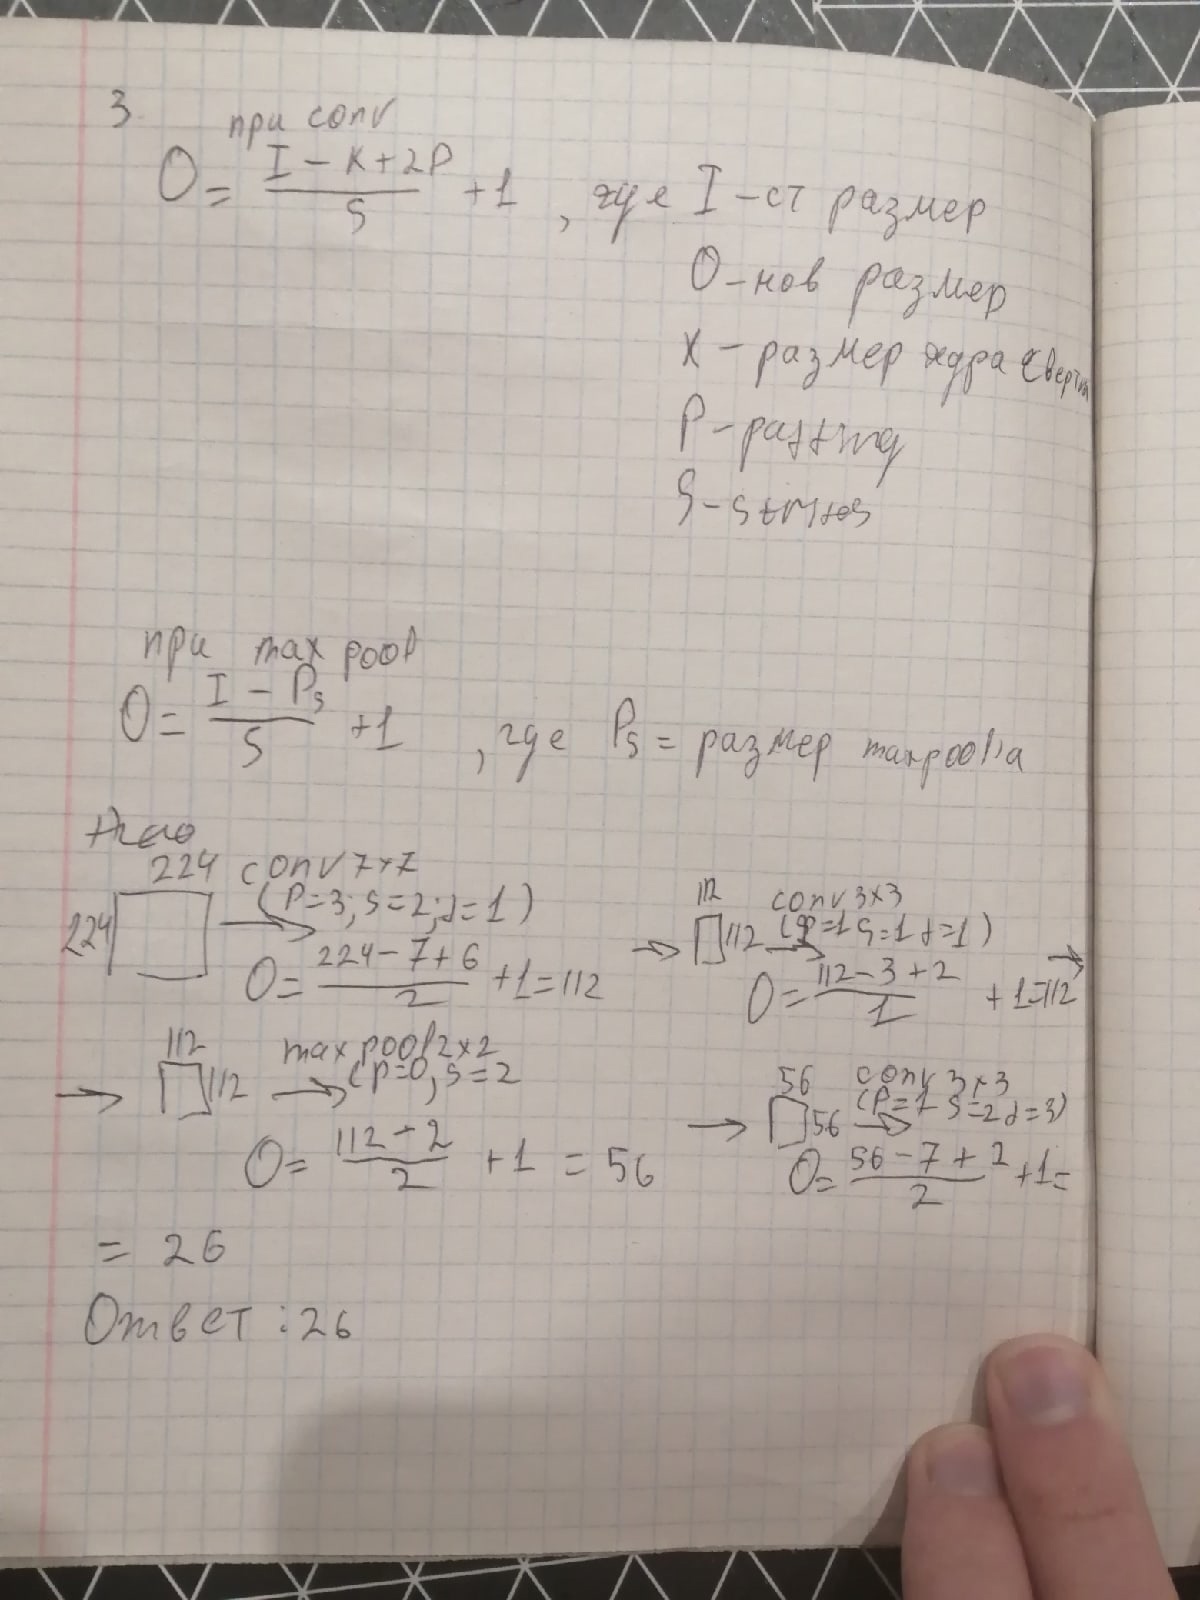 3.
при conv
O = (I - K + 2P) / S + 1 , где I - ст размер
O - нов размер
K - размер ядра свертки
P - padding
S - strides
при max pool
O = (I - Ps) / S + 1 , где Ps = размер maxpool'а
224 conv 7x7
224 (P=3; s=2; d=1)
O = (224 - 7 + 6) / 2 + 1 = 112
→ 112 conv 3x3
112 (p=1 s=1 d=1) →
O = (112 - 3 + 2) / 1 + 1 = 112
→ 112 max pool 2x2
112 (p=0, s=2
O = (112 - 2) / 2 + 1 = 56
→ 56 conv 3x3
56 (P=1 s=2 d=3)
O = (56 - 7 + 2) / 2 + 1 =
= 26
Ответ : 26